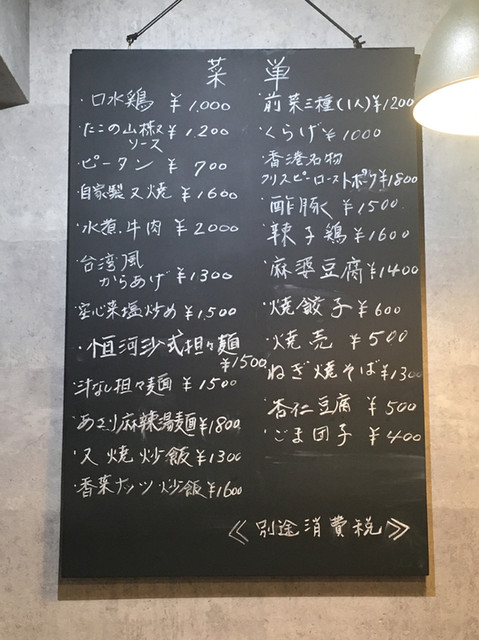 菜 単
・口水鶏 ¥1,000
・たこの山椒
ソース ¥1,200
・ピータン ¥700
・自家製叉焼 ¥1600
・水煮牛肉 ¥2000
・台湾風
からあげ ¥1300
・空心菜塩炒め ¥1,500
・恒河沙式担々麺
¥1500
・汁なし担々麺 ¥1500
・あさり麻辣湯麺 ¥1800
・叉焼炒飯 ¥1300
・香菜ナッツ炒飯 ¥1600
・前菜三種(1人) ¥1200
・くらげ ¥1000
・香港名物
クリスピーローストポーク ¥1800
・酢豚 ¥1500
・辣子鶏 ¥1600
・麻婆豆腐 ¥1400
・焼餃子 ¥600
・焼売 ¥500
・ねぎ焼そば ¥1300
・杏仁豆腐 ¥500
・ごま団子 ¥400
≪別途消費税≫